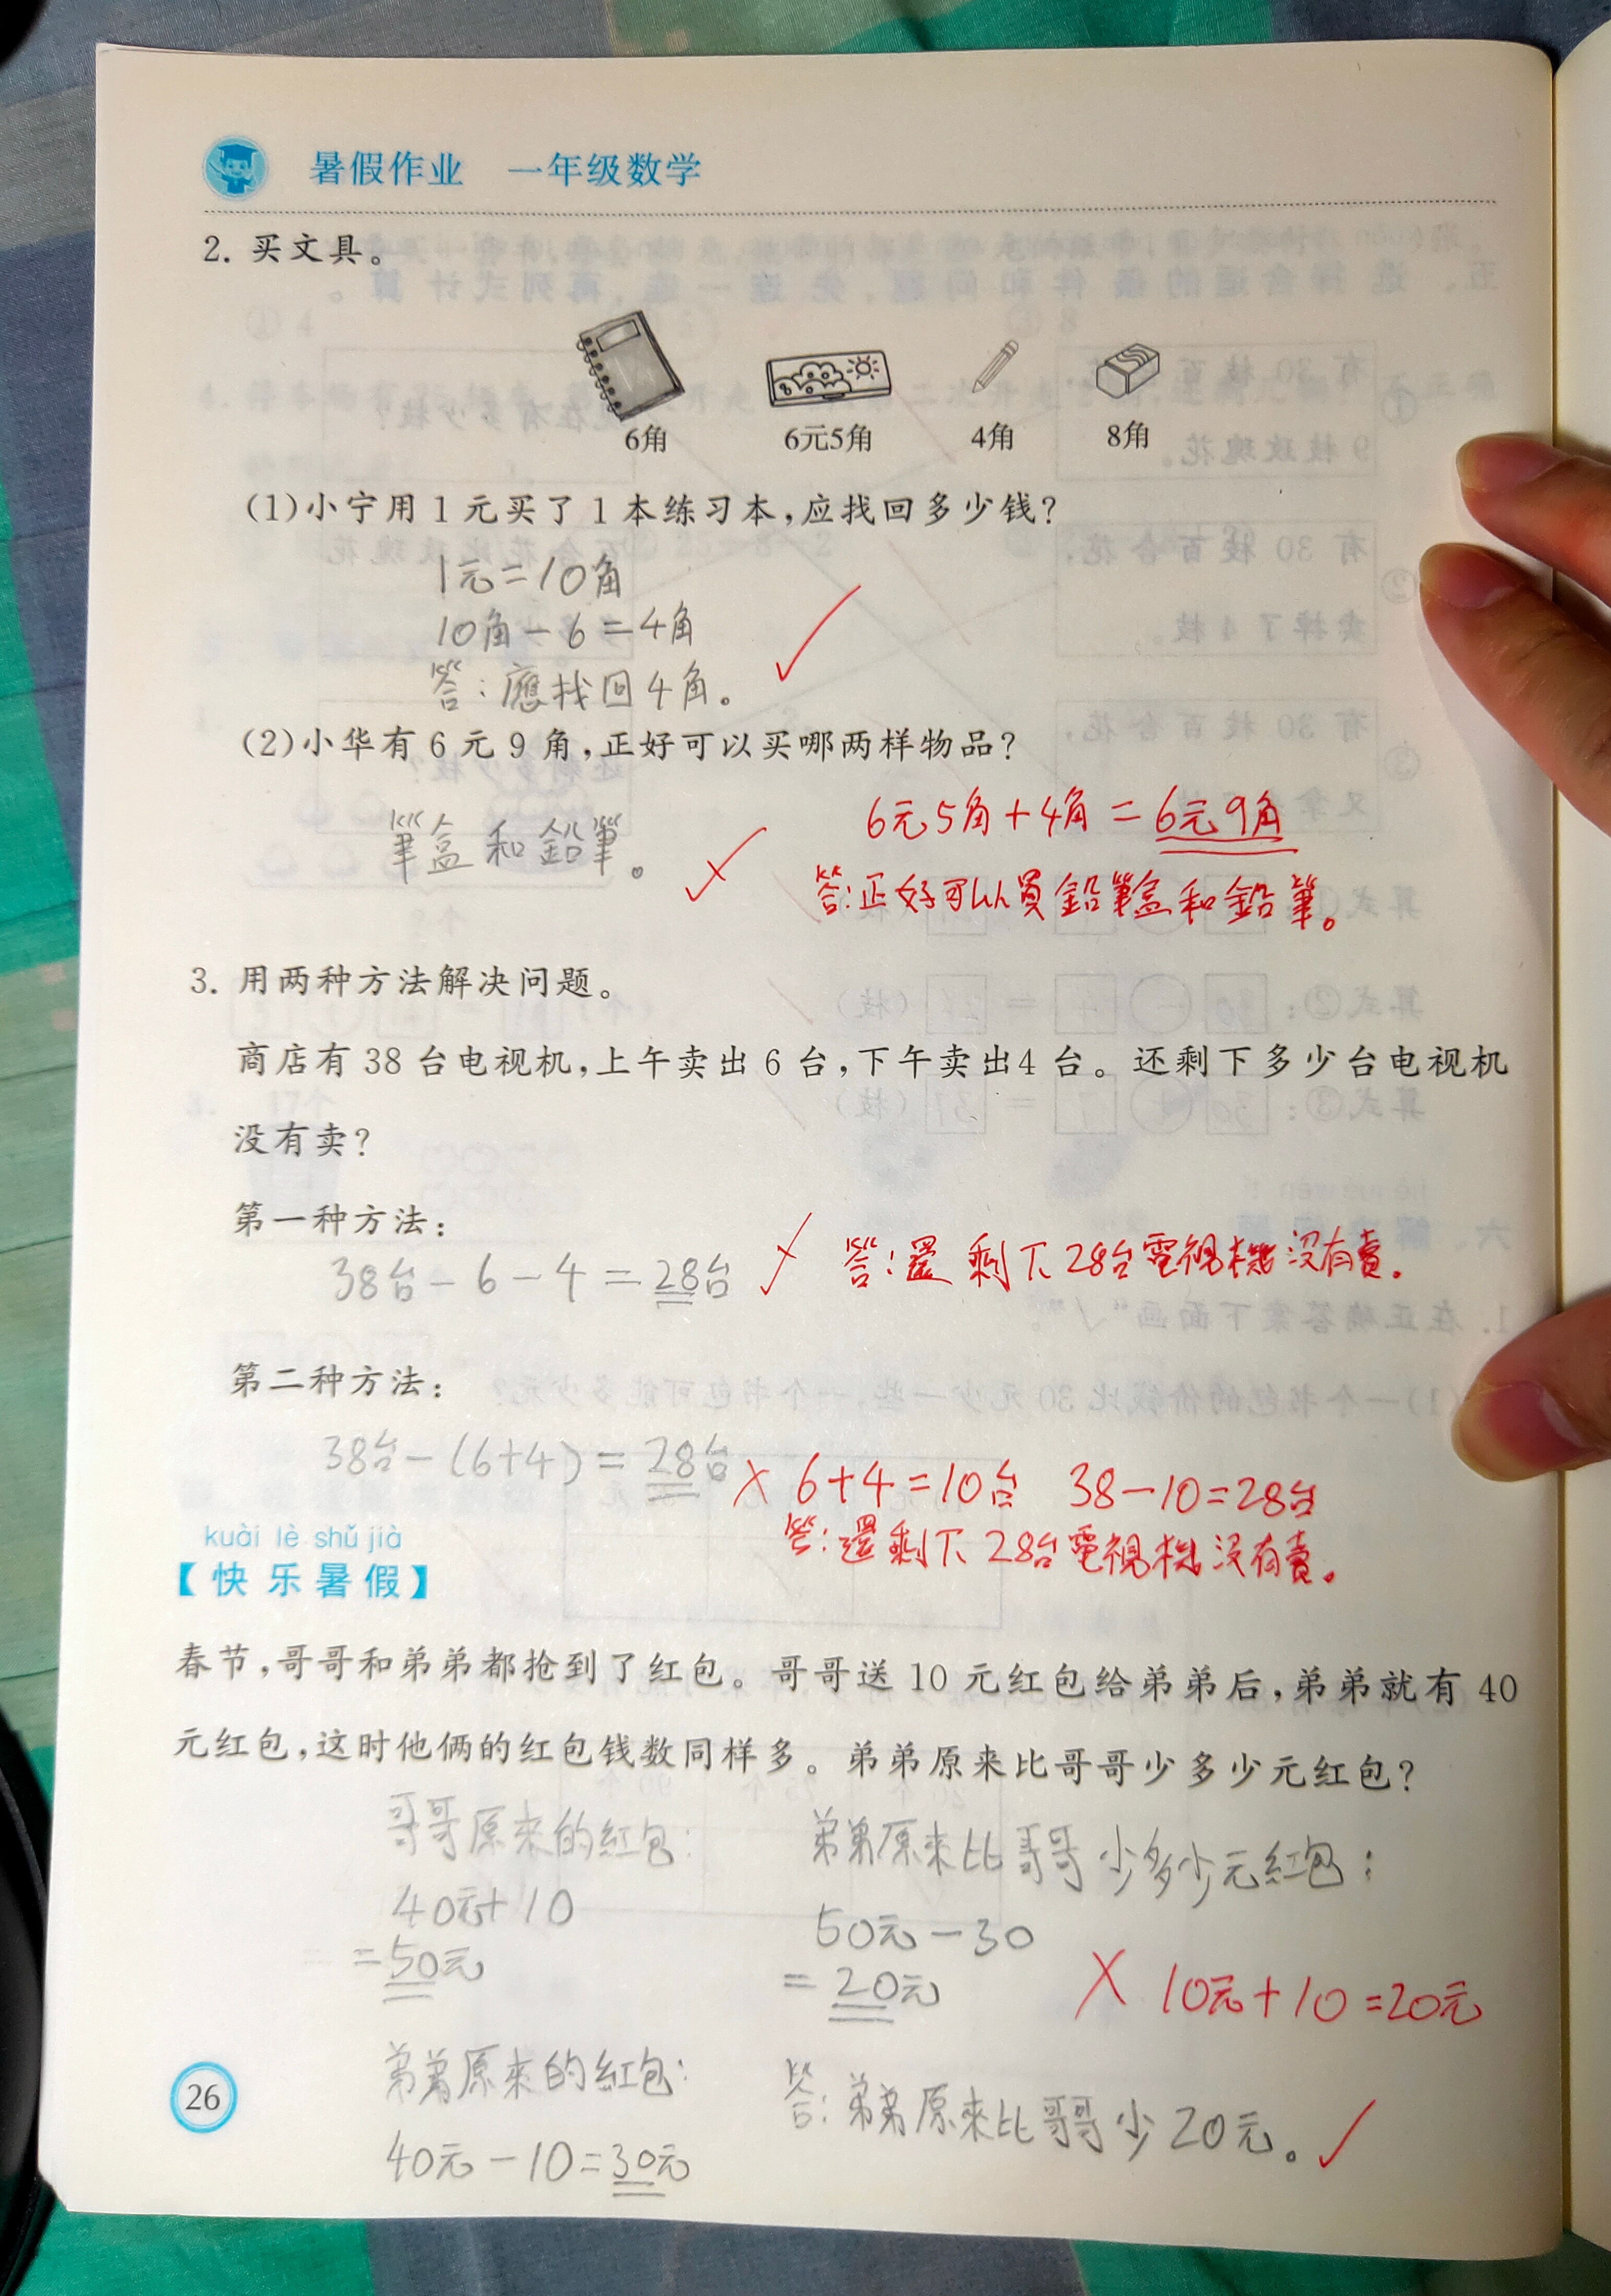 暑假作业 一年级数学
2. 买文具。
6角 6元5角 4角 8角
(1)小宁用1元买了1本练习本,应找回多少钱?
1元=10角
10角-6=4角
答:應找回4角。
(2)小华有6元9角,正好可以买哪两样物品?
筆盒和鉛筆。
6元5角+4角=6元9角
答:正好可以買鉛筆盒和鉛筆。
3. 用两种方法解决问题。
商店有38台电视机,上午卖出6台,下午卖出4台。还剩下多少台电视机
没有卖?
第一种方法:
38台-6-4=28台
答:還剩下28台電視機沒有賣。
第二种方法:
38台-(6+4)=28台
6+4=10台 38-10=28台
答:還剩下28台電視機沒有賣。
kuài lè shǔ jià
【快乐暑假】
春节,哥哥和弟弟都抢到了红包。哥哥送10元红包给弟弟后,弟弟就有40
元红包,这时他俩的红包钱数同样多。弟弟原来比哥哥少多少元红包?
哥哥原來的紅包:
40元+10
=50元
弟弟原來的紅包:
40元-10=30元
弟弟原來比哥哥少多少元紅包:
50元-30
=20元
10元+10=20元
答:弟弟原來比哥哥少20元。
26